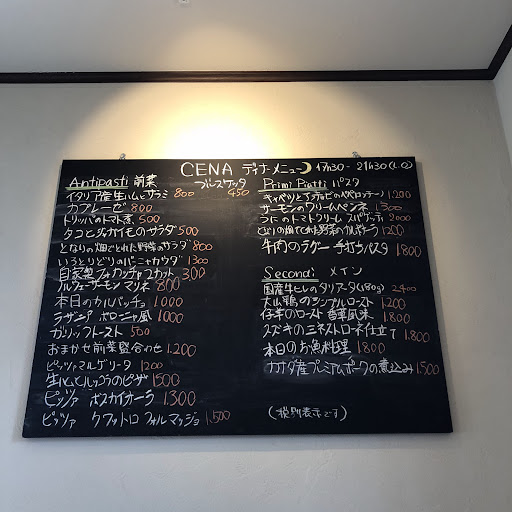 CENA ディナーメニュー 17h30 - 21h30 (L.O)
Antipasti 前菜
ブルスケッタ 450
イタリア産生ハムとサラミ 800
カプレーゼ 800
トリッパのトマト煮 500
タコとジャガイモのサラダ 500
となりの畑でとれた野菜のサラダ 800
いろとりどりのバーニャカウダ 1300
自家製フォカッチャ2カット 300
ノルウェーサーモン マリネ 800
本日のカルパッチョ 1000
ラザニア ボロニャ風 1000
ガーリックトースト 500
おまかせ前菜盛合わせ 1.200
ピッツァマルゲリータ 1200
生ハムとルッコラのピザ 1500
ピッツァ ボスカイオーラ 1.300
ピッツァ クワットロ フォルマッジョ 1.500
Primi Piatti パスタ
キャベツとアンチョビのペペロンチーノ 1.200
サーモンのクリームペンネ 1300
うにのトマトクリーム スパゲッティ 2000
となりの畑でとれた野菜のカルボナーラ 1200
牛肉のラグー 手打ちパスタ 1.800
Secondi メイン
国産牛ヒレのタリアータ(180g) 2.400
大山鶏のシンプルロースト 1.200
仔羊のロースト 香草風味 1.800
スズキのミネストローネ仕立て 1.800
本日のお魚料理 1.800
カナダ産プレミアムポークの煮込み 1.500
(税別表示です)